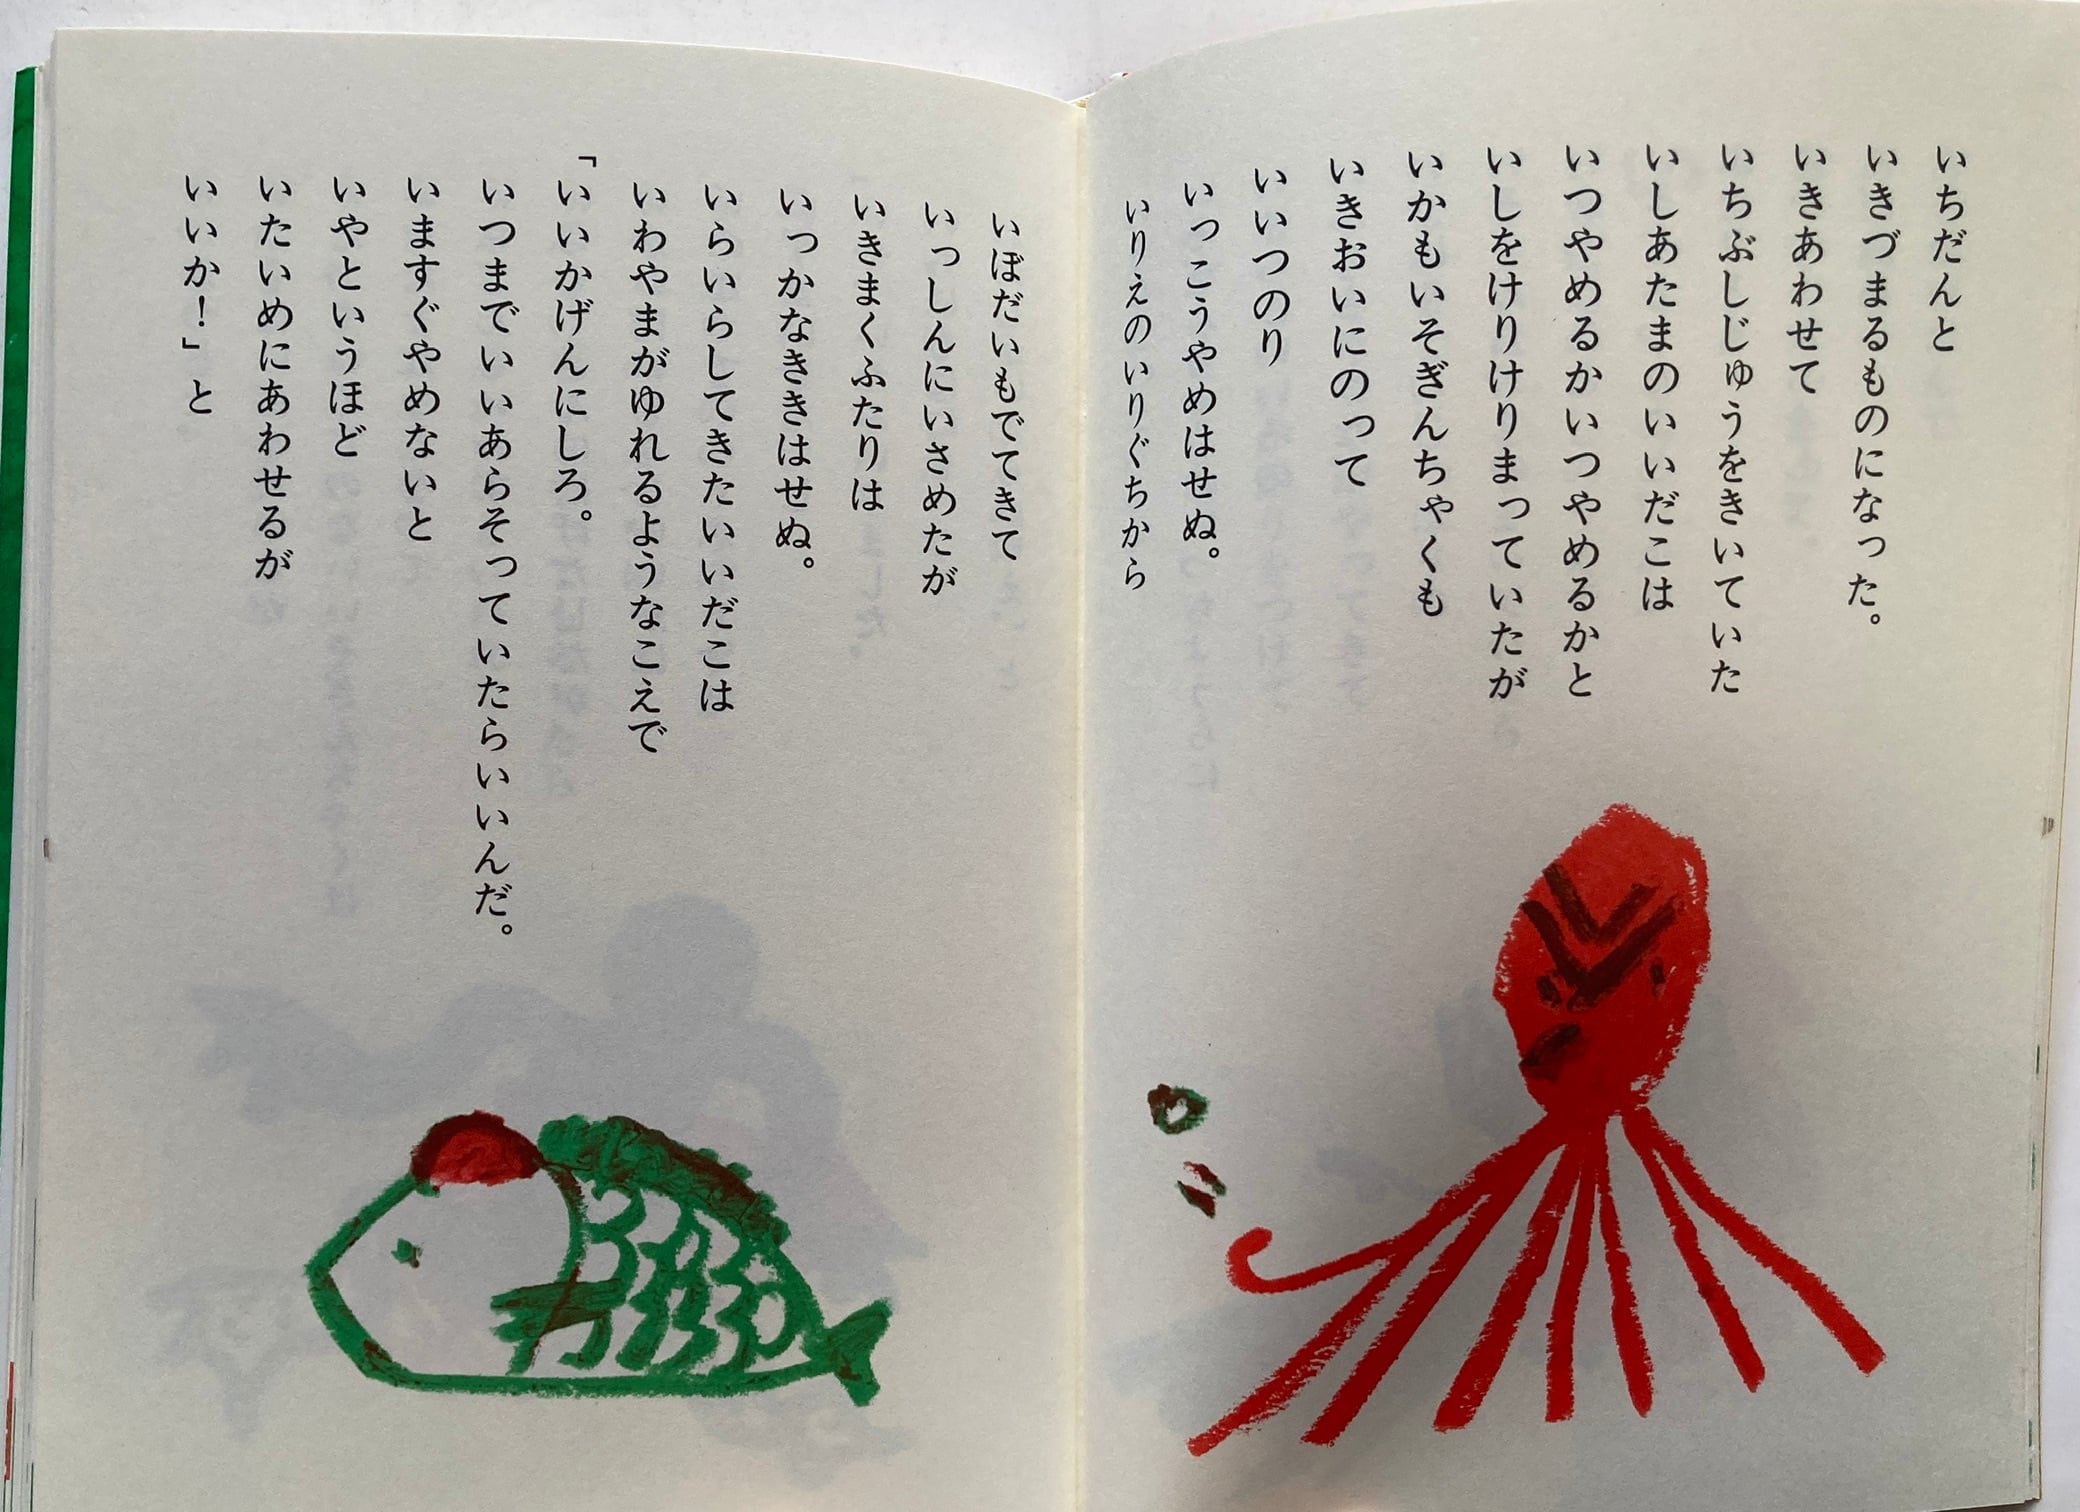 いちだんと
いきづまるものになった。
いきあわせて
いちぶしじゅうをきいていた
いしあたまのいいだこは
いつやめるかいつやめるかと
いしをけりけりまっていたが
いかもいそぎんちゃくも
いきおいにのって
いいつのり
いっこうやめはせぬ。
いりえのいりぐちから
いぼだいもでてきて
いっしんにいさめたが
いきまくふたりは
いっかなききはせぬ。
いらいらしてきたいいだこは
いわやまがゆれるようなこえで
「いいかげんにしろ。
いつまでいいあらそっていたらいいんだ。
いますぐやめないと
いやというほど
いたいめにあわせるが
いいか！」と